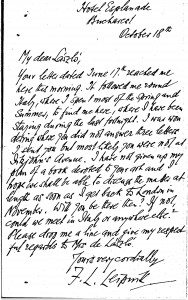 Hotel Esplanade
Bucharest
October 18th
My dear László,
Your letter dated June 17th reached me
here this morning. It followed me round
Italy, where I spent most of the Spring and
Summer, to find me here, where I have been
staying during the last fortnight. I was won
dering why you did not answer three letters
I sent you but most likely you were not at
Avenue. I have not given up my
plan of a book devoted to your art and I
hope we shall be able to discuss the matter at
length as soon as I get back to London in
November. Will you be there then? If not,
could we meet in Italy or anywhere else?
Please drop me a line and give my respect
ful regards to Mrs de László.
Yours very cordially
F. L.